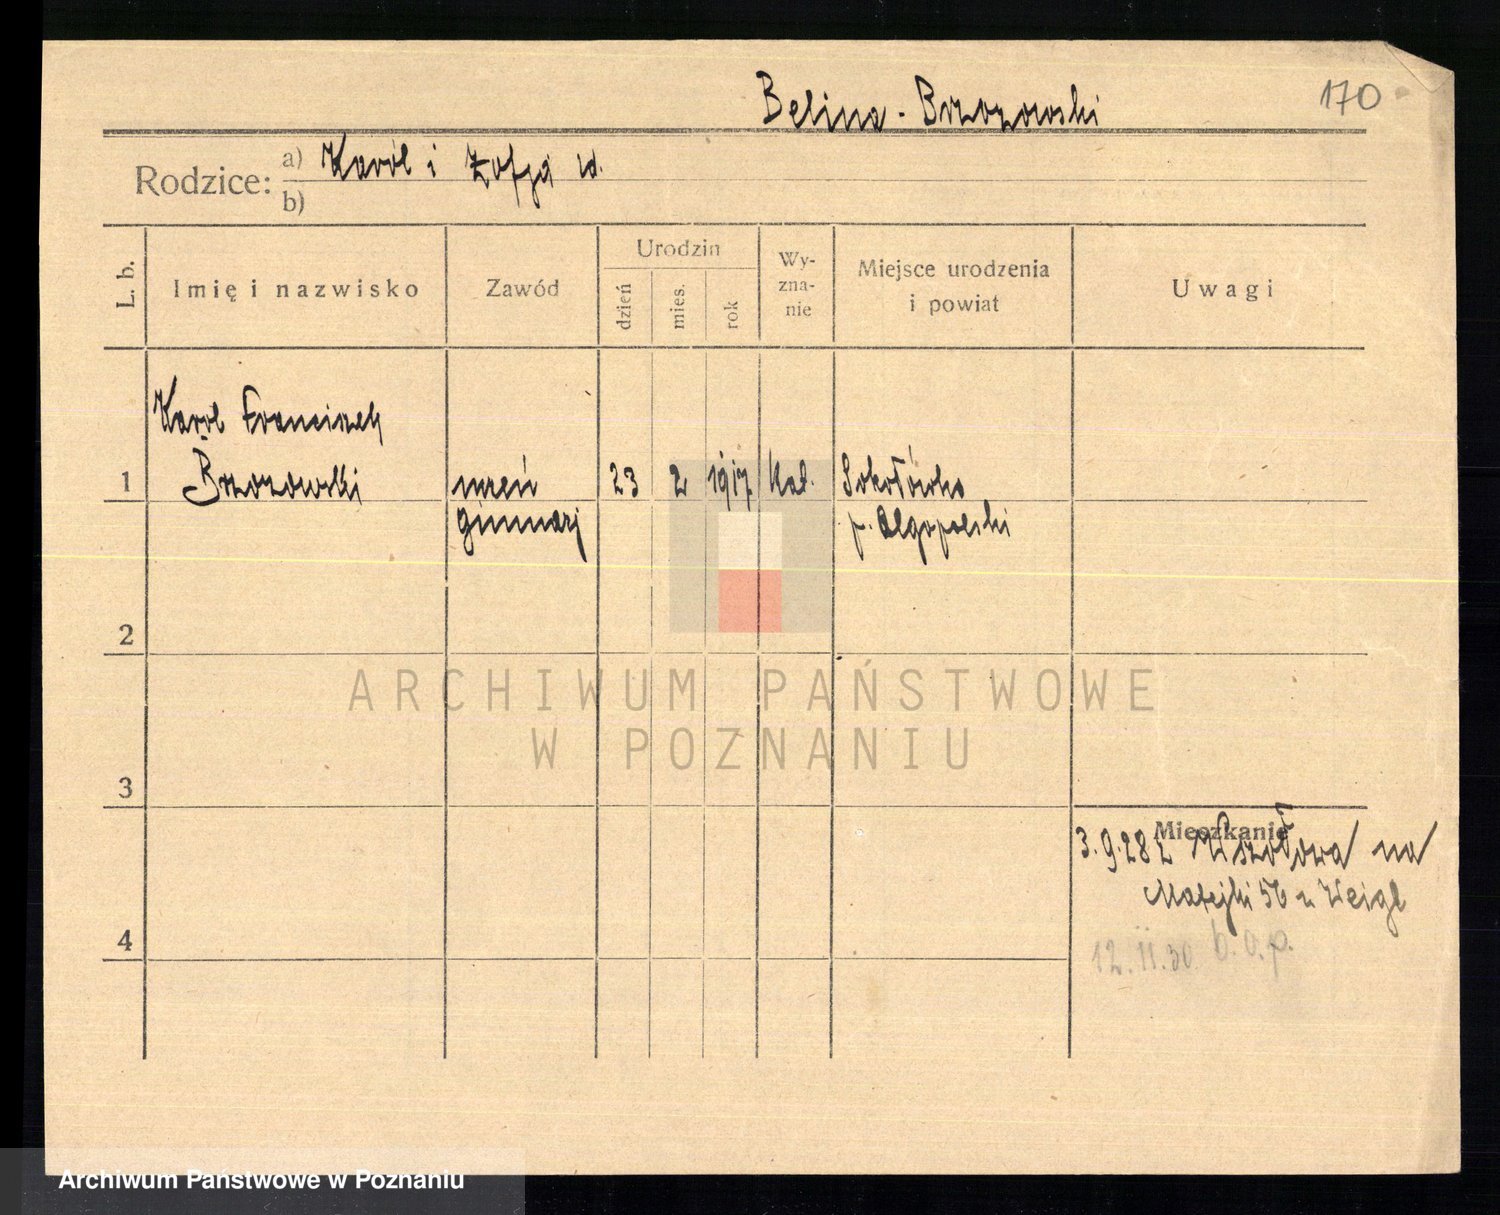 170
Belina - Brzozowski
Rodzice: a) Karól i Zofja
b)
L. b. Imię i nazwisko Zawód Urodzin dzień mies. rok Wy-zna-nie Miejsce urodzenia i powiat Uwagi
Karol Franciszek
1 Brzozowski uczeń 23 2 1917 kat. Sokołówka
gimnazj p. Olgopolski
2
ARCHIWUM PAŃSTWOWE
W POZNANIU
3
Mieszkanie
3.9.28 z na
Matejki 56 u Weigl
4
12.11.30 b.o.p.
Archiwum Państwowe w Poznaniu